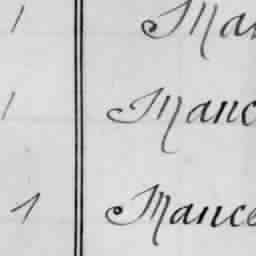 1 Man
1 Manc
1 Mance